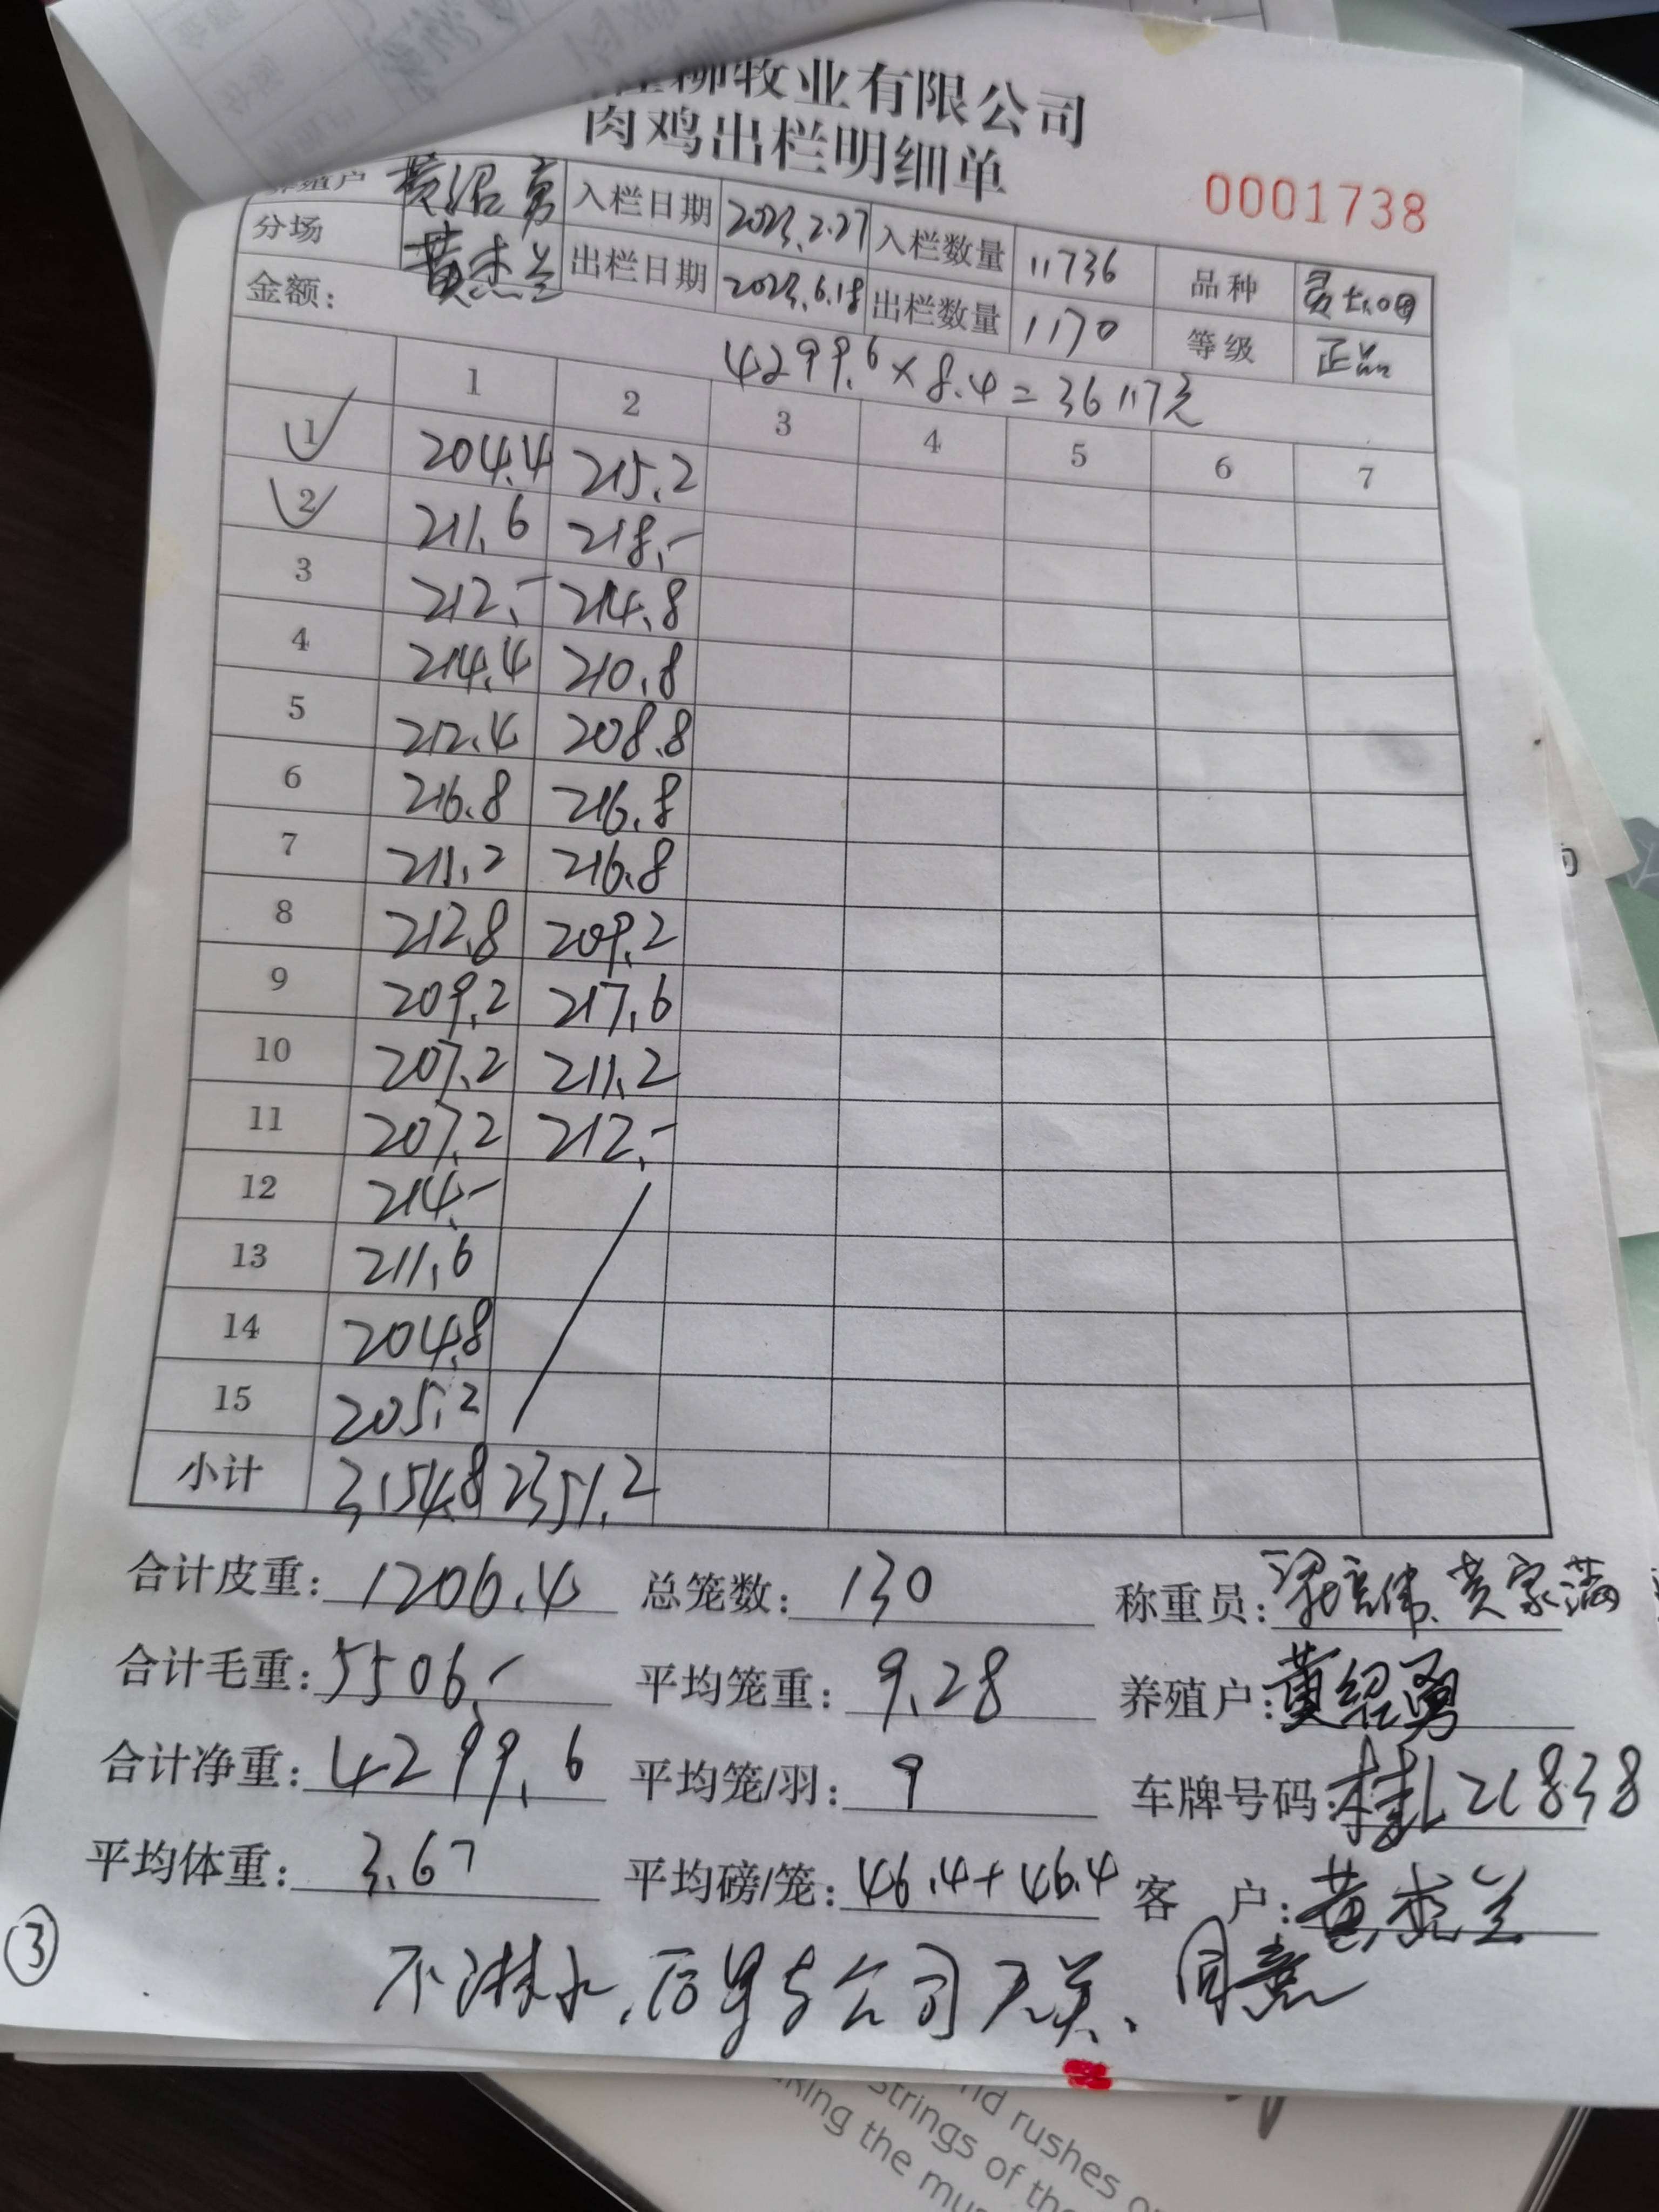 柳牧业有限公司
肉鸡出栏明细单
0001738
养殖户 黄绍勇 入栏日期 2023.2.27 入栏数量 11736 品种
分场 黄杰兰 出栏日期 2023.6.18 出栏数量 1170 等级 正品
金额: 4299.6×8.4=36117元
1 2 3 4 5 6 7
1 204.4 215.2
2 211.6 218.-
3 212.- 214.8
4 214.4 210.8
5 212.4 208.8
6 216.8 216.8
7 211.2 216.8
8 212.8 209.2
9 209.2 217.6
10 207.2 211.2
11 207.2 212.-
12 214.-
13 211.6
14 204.8
15 205.2
小计 3154.8 2351.2
合计皮重: 1206.4 总笼数: 130 称重员: 黄家满
合计毛重: 5506.- 平均笼重: 9.28 养殖户: 黄绍勇
合计净重: 4299.6 平均笼/羽: 9 车牌号码: 桂L21838
平均体重: 3.67 平均磅/笼: 46.4+46.4 客 户: 黄杰兰
③
不淋水,后果与公司无关、同意
nd rushes o
strings of the
king the mu